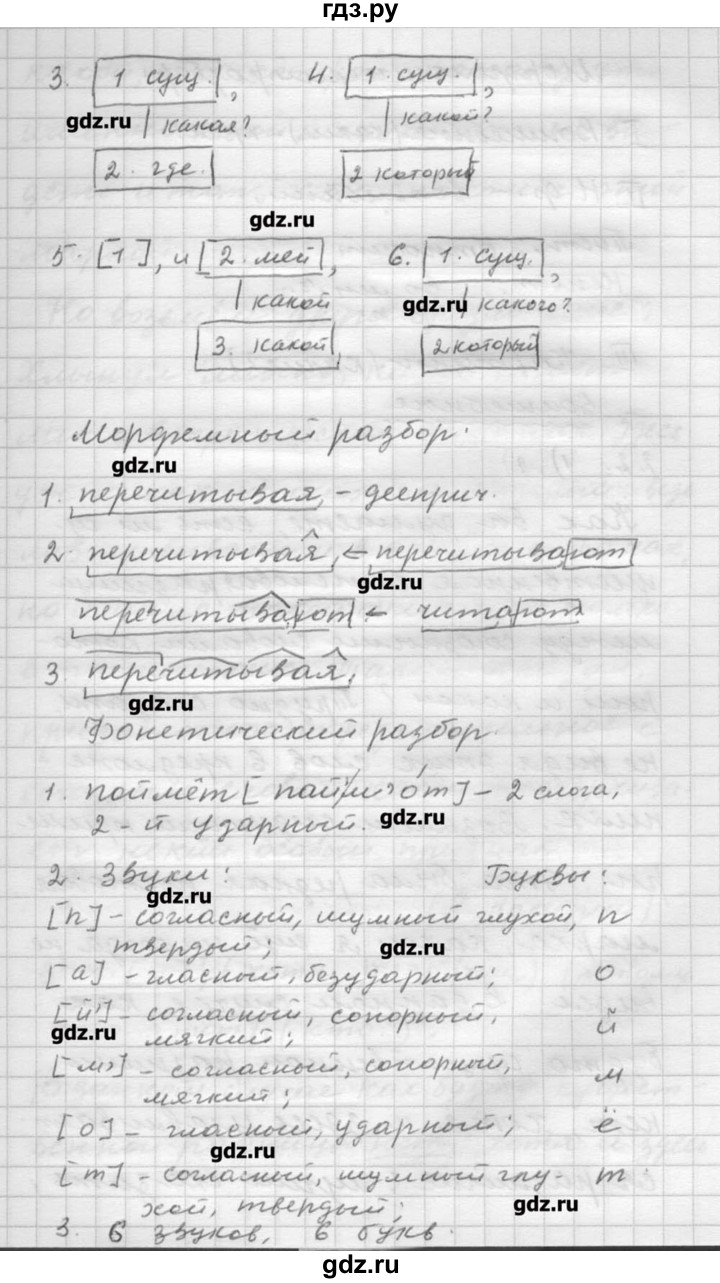 гдз.ру
3. 1 сущ., 4. 1. сущ.,
gdz.ru какая? какой?
2. где. 2 который
gdz.ru
5. [1], и 2. мей, 6. 1. сущ.,
какой gdz.ru какого?
3. какой, 2 который
Морфемный разбор.
gdz.ru
1. перечитывая, - дееприч.
2. перечитывая, ← перечитывают
gdz.ru
перечитывают ← читают
3. перечитывая,
gdz.ru
Фонетический разбор.
1. поймёт [пай'м'о́т] - 2 слога,
2-й ударный. gdz.ru
2. Звуки: Буквы:
gdz.ru
[п] - согласный, шумный глухой, п
твердый; gdz.ru
[а] - гласный, безударный; о
[й'] - согласный, сонорный, й
gdz.ru мягкий;
[м'] - согласный, сонорный, м
мягкий;
[о] - гласный, ударный; ё
gdz.ru
[т] - согласный, шумный глу- т.
хой, твердый; gdz.ru
3. 6 звуков, 6 букв.
gdz.ru